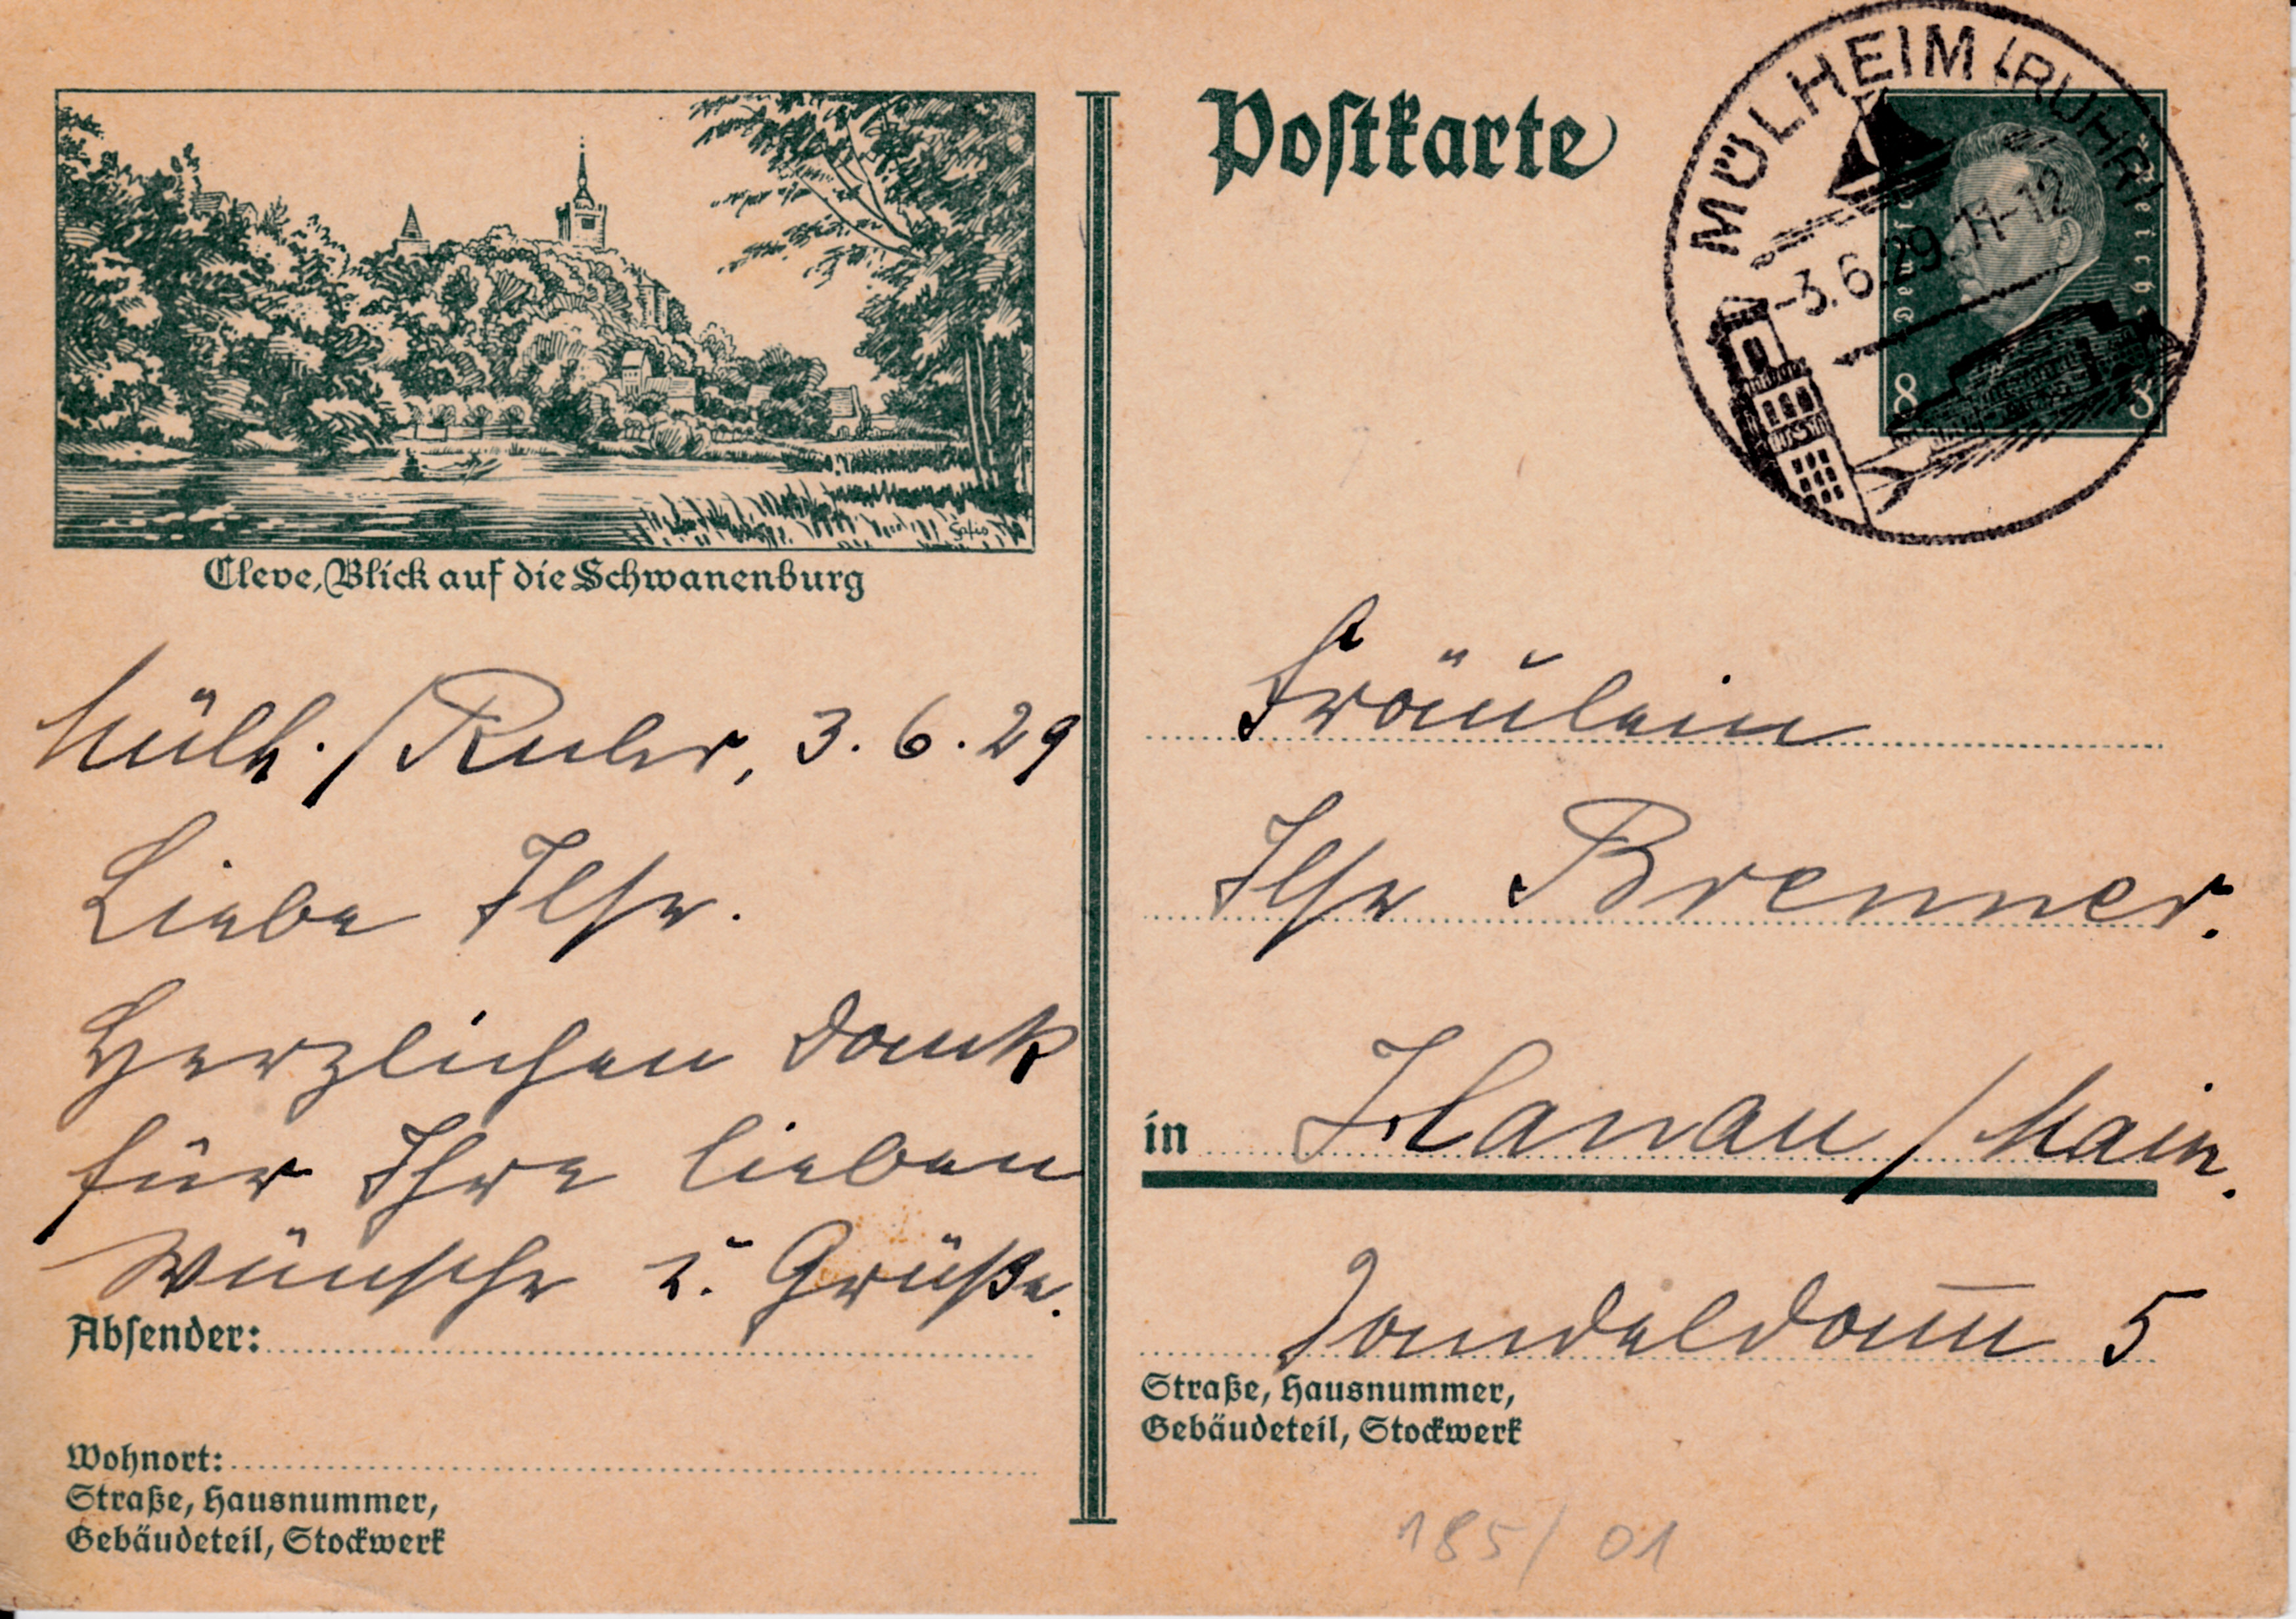 Cleve, Blick auf die Schwanenburg
Mülh./Ruhr, 3.6.29
Liebe Ilse.
Herzlichen Dank
für Ihre lieben
Wünsche u. Grüße.
Absender:
Wohnort:
Straße, Hausnummer,
Gebäudeteil, Stockwerk
Postkarte
MÜLHEIM (RUHR)
-3.6.29.11-12
8 8
Fräulein
Ilse Brenner.
in Hanau/Main.
5
Straße, Hausnummer,
Gebäudeteil, Stockwerk
185/01